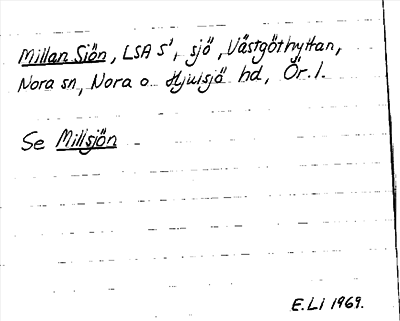 Millan Siön, LSA S¹, sjö, Västgöthyttan,
Nora sn, Nora o Hjulsjö hd, Ör. l.
Se Millsjön
E.Li 1969.